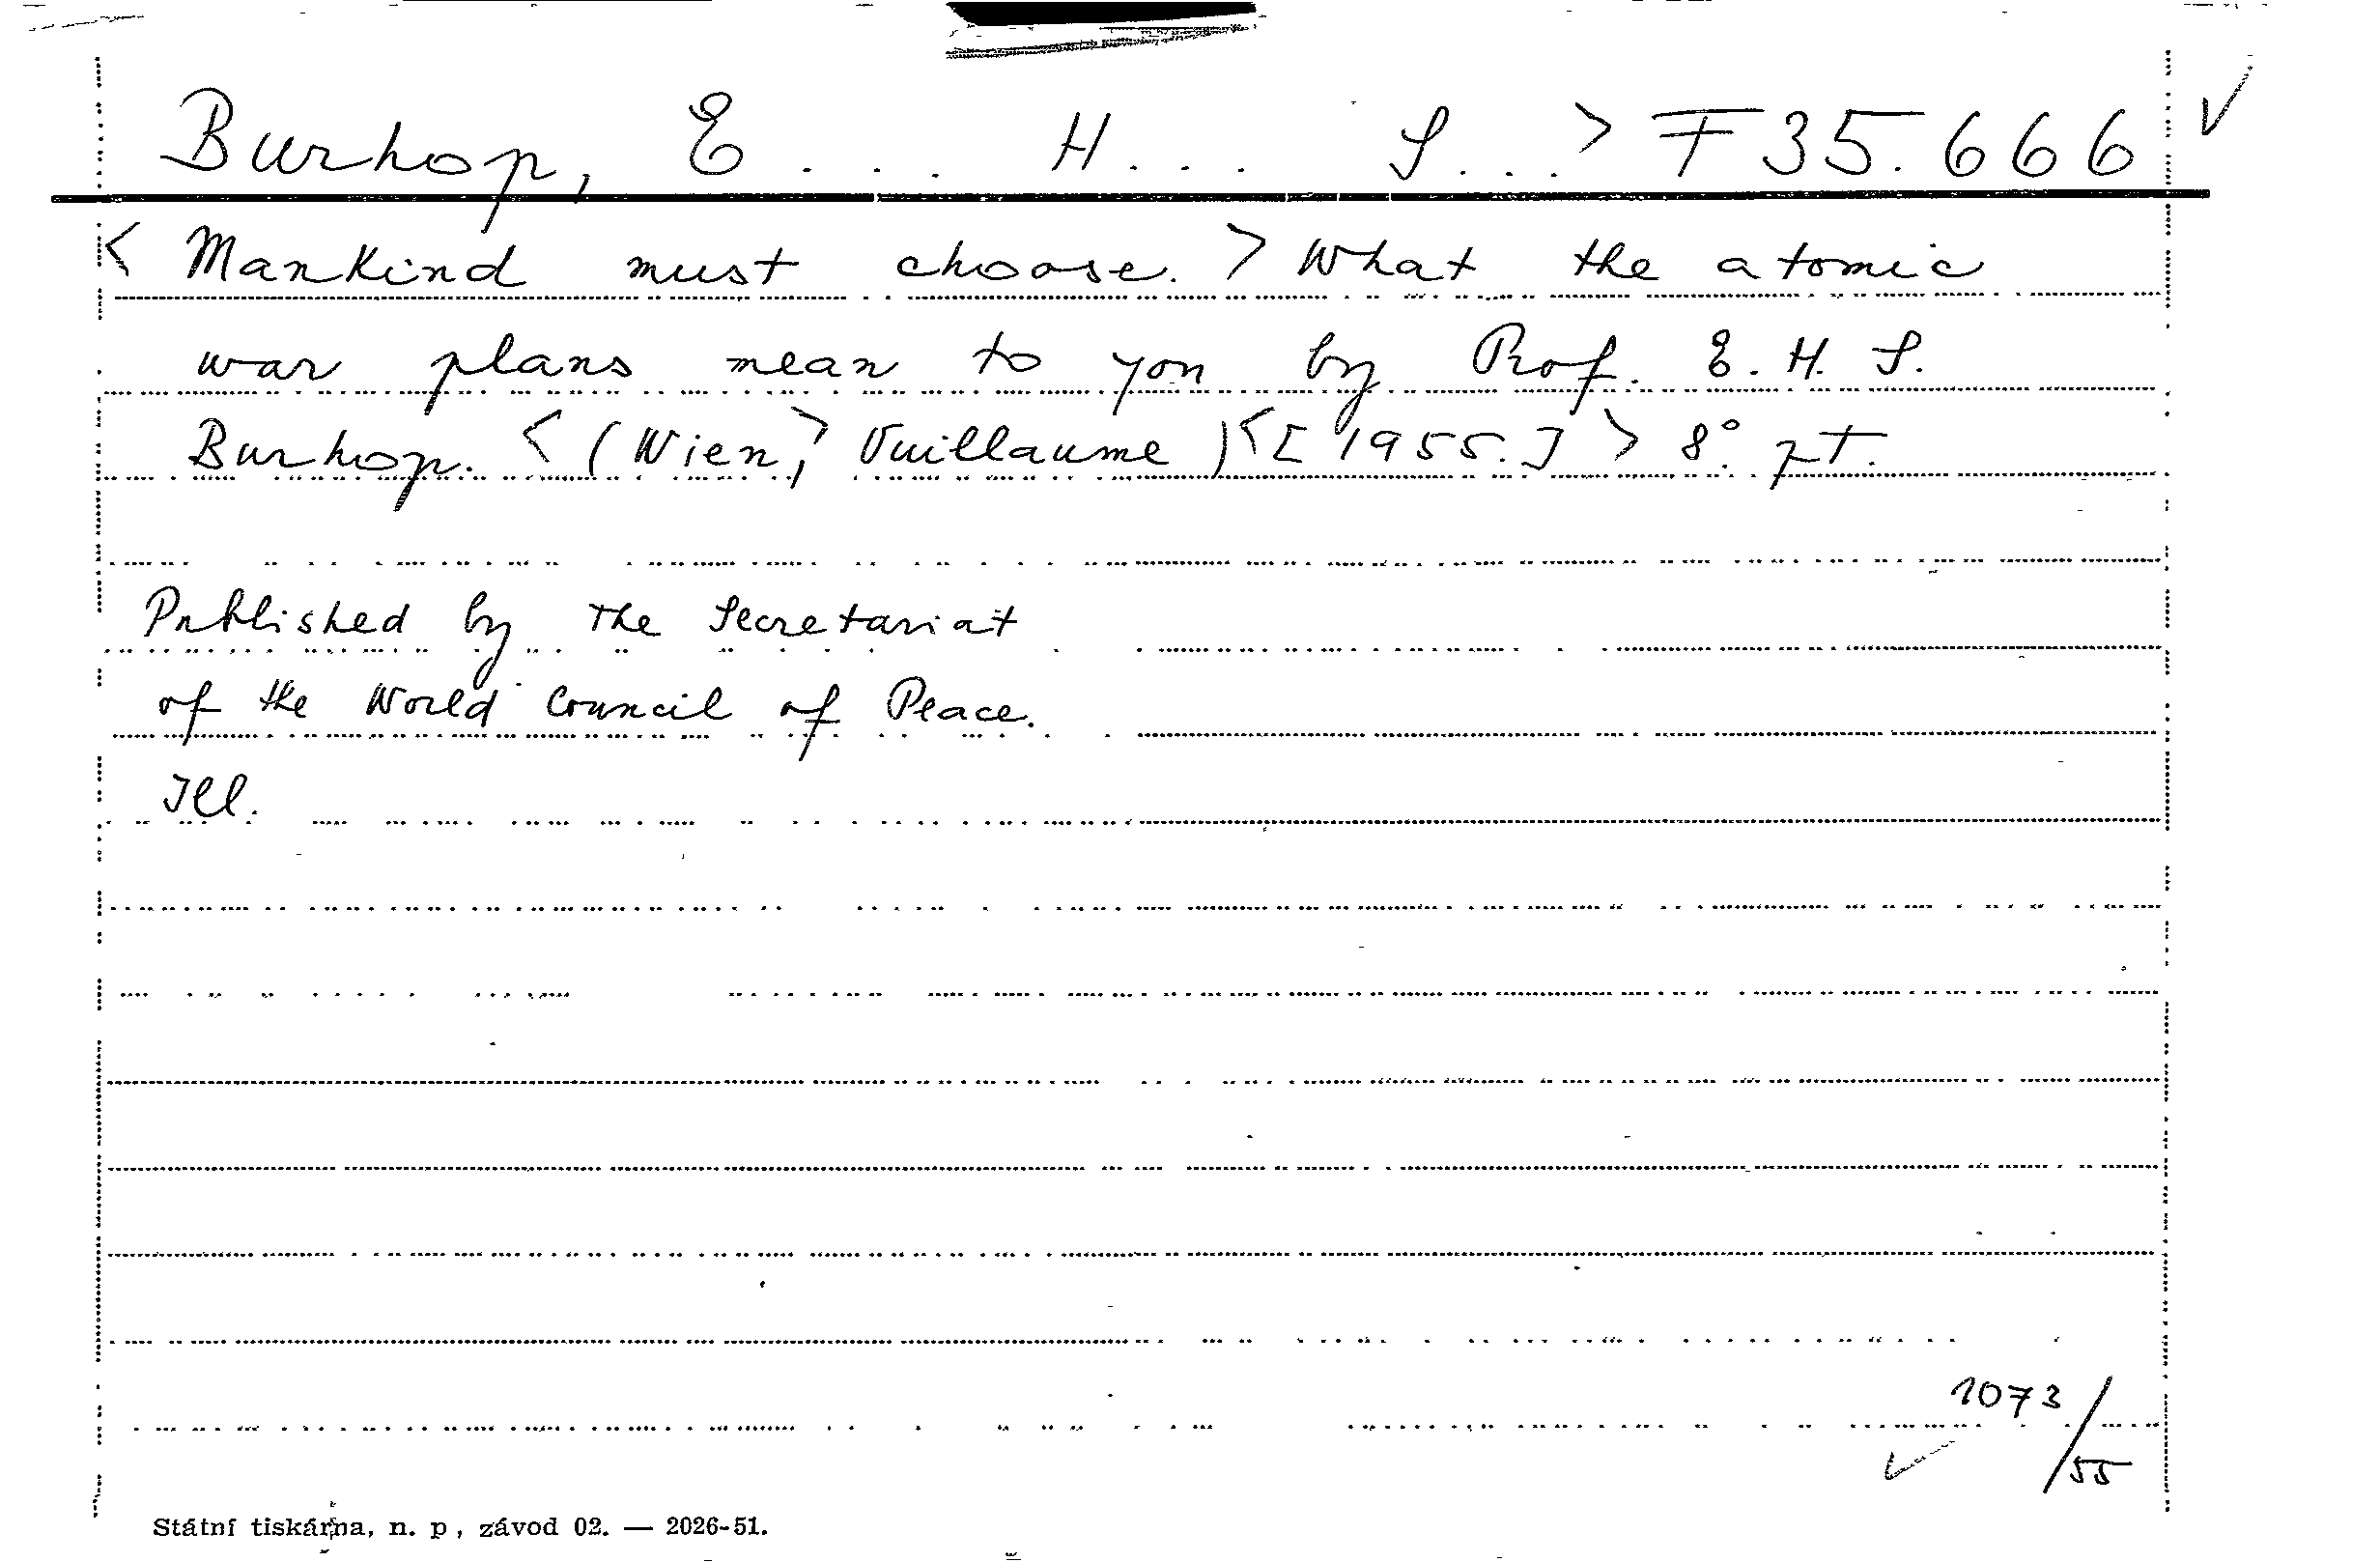 Burhop, E... H... S...> F 35.666
< Mankind must choose. > What the atomic
war plans mean to you by Prof. E. H. S.
Burhop. < (Wien,> Vuillaume )<[1955.]> 8°. pt.
Published by the Secretariat
of the World Council of Peace.
Ill.
1073/55
Státní tiskárna, n. p, závod 02. — 2026-51.